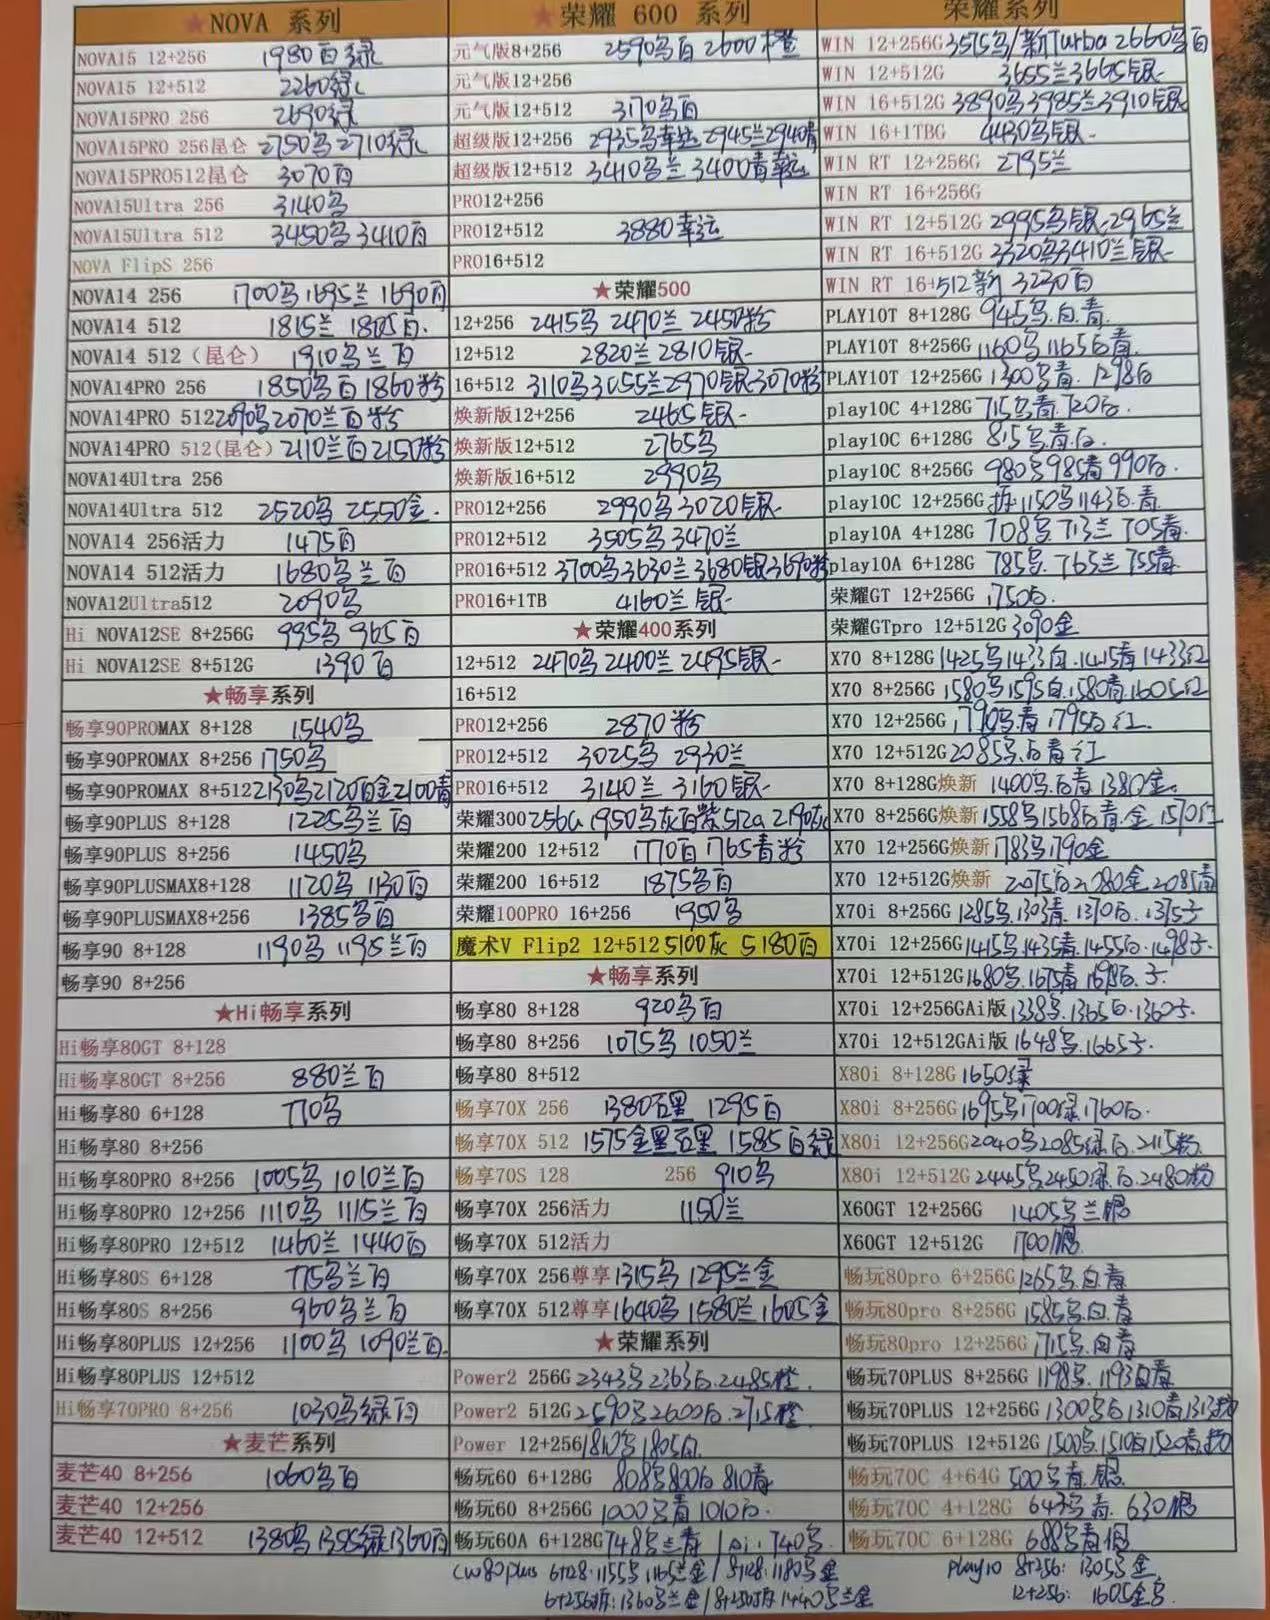 ★NOVA 系列
NOVA15 12+256 1980白绿
NOVA15 12+512 2260绿
NOVA15PRO 256 2690绿
NOVA15PRO 256昆仑 2750乌 2710绿
NOVA15PRO512昆仑 3070白
NOVA15Ultra 256 3140乌
NOVA15Ultra 512 3450乌 3410白
NOVA FlipS 256
NOVA14 256 1700乌 1695兰 1690白
NOVA14 512 1815兰 1805白.
NOVA14 512（昆仑） 1910乌兰白
NOVA14PRO 256 1850乌白 1860粉
NOVA14PRO 512 2090乌 2070兰白粉
NOVA14PRO 512(昆仑) 2110兰白 2150粉
NOVA14Ultra 256
NOVA14Ultra 512 2520乌 2550金.
NOVA14 256活力 1475白
NOVA14 512活力 1680乌兰白
NOVA12Ultra512 2090乌
Hi NOVA12SE 8+256G 995乌 965白
Hi NOVA12SE 8+512G 1390白
★畅享系列
畅享90PROMAX 8+128 1540乌
畅享90PROMAX 8+256 1750乌
畅享90PROMAX 8+512 2130乌 2120白金 2100青
畅享90PLUS 8+128 1225乌兰白
畅享90PLUS 8+256 1450乌
畅享90PLUSMAX8+128 1120乌 1130白
畅享90PLUSMAX8+256 1385乌白
畅享90 8+128 1190乌 1195兰白
畅享90 8+256
★Hi畅享系列
Hi畅享80GT 8+128
Hi畅享80GT 8+256 880兰白
Hi畅享80 6+128 770乌
Hi畅享80 8+256
Hi畅享80PRO 8+256 1005乌 1010兰白
Hi畅享80PRO 12+256 1110乌 1115兰白
Hi畅享80PRO 12+512 1460兰 1440白
Hi畅享80S 6+128 775乌兰白
Hi畅享80S 8+256 960乌兰白
Hi畅享80PLUS 12+256 1100乌 1090兰白.
Hi畅享80PLUS 12+512
Hi畅享70PRO 8+256 1030乌绿白
★麦芒系列
麦芒40 8+256 1060乌白
麦芒40 12+256
麦芒40 12+512 1380乌 1385绿 1360白
★荣耀 600 系列
元气版8+256 2590乌白 2600橙
元气版12+256
元气版12+512 3170乌白
超级版12+256 2935乌幸运 2945兰 2940青
超级版12+512 3410乌兰 3400青幸运
PRO12+256
PRO12+512 3880幸运
PRO16+512
★荣耀500
12+256 2415乌 2470兰 2450粉
12+512 2820兰 2810银
16+512 3110乌 3055兰 2970银 3070粉
焕新版12+256 2465银
焕新版12+512 2765乌
焕新版16+512 2990乌
PRO12+256 2990乌 3020银
PRO12+512 3505乌 3470兰
PRO16+512 3700乌 3630兰 3680银 3690粉
PRO16+1TB 4160兰银
★荣耀400系列
12+512 2470乌 2400兰 2495银
16+512
PRO12+256 2870粉
PRO12+512 3025乌 2930兰
PRO16+512 3140兰 3160银
荣耀300 256G 1950乌灰白紫 512G 2190灰
荣耀200 12+512 1770白 1765青粉
荣耀200 16+512 1875乌白
荣耀100PRO 16+256 1950乌
魔术V Flip2 12+512 5100灰 5180白
★畅享系列
畅享80 8+128 920乌白
畅享80 8+256 1075乌 1050兰
畅享80 8+512
畅享70X 256 1380石墨 1295白
畅享70X 512 1575金墨石墨 1585白绿
畅享70S 128 256 910乌
畅享70X 256活力 1150兰
畅享70X 512活力
畅享70X 256尊享 1315乌 1295兰金
畅享70X 512尊享 1640乌 1580兰 1605金
★荣耀系列
Power2 256G 2343乌 2363白.2485橙.
Power2 512G 2590乌 2600白.2715橙
Power 12+256 1810乌 1805白.
畅玩60 6+128G 808乌 800白 810青
畅玩60 8+256G 1000乌青 1010白.
畅玩60A 6+128G 748乌兰青 740乌.
荣耀系列
WIN 12+256G 3575乌/新Turbo 2660乌白
WIN 12+512G 3655兰 3665银
WIN 16+512G 3890乌 3985兰 3910银
WIN 16+1TBG 4430乌银
WIN RT 12+256G 2795兰
WIN RT 16+256G
WIN RT 12+512G 2995乌银 2965兰
WIN RT 16+512G 3320乌 3410兰银
WIN RT 16+512新 3230白
PLAY10T 8+128G 945乌.白.青.
PLAY10T 8+256G 1160乌 1165白青.
PLAY10T 12+256G 1300乌青. 1298白
play10C 4+128G 715乌青.720白.
play10C 6+128G 815乌.青.白.
play10C 8+256G 980乌 985青 990白.
play10C 12+256G 拆.1150乌 1143白.青.
play10A 4+128G 708乌 713兰 705青.
play10A 6+128G 785乌. 765兰 755青.
荣耀GT 12+256G 1750白.
荣耀GTpro 12+512G 3090金
X70 8+128G 1425乌 1433白.1415青 1433红
X70 8+256G 1580乌 1595白.1580青.1605红
X70 12+256G 1790乌.青 1795白.红.
X70 12+512G 2085乌.白青.红
X70 8+128G焕新 1400乌.白青 1380金.
X70 8+256G焕新 1558乌 1568白青.金 1570红
X70 12+256G焕新 1783乌 1790金
X70 12+512G焕新 2075白 2080金 2085青
X70i 8+256G 1285乌.1303青.1370白.1375子
X70i 12+256G 1415乌.1435青.1455白.1498子.
X70i 12+512G 1680乌.1675青 1698白.子.
X70i 12+256GAi版 1338乌.1365白.1360子.
X70i 12+512GAi版 1648乌.1665子.
X80i 8+128G 1650绿
X80i 8+256G 1695乌 1700绿 1760白.
X80i 12+256G 2040乌 2085绿.白.2115粉
X80i 12+512G 2445乌 2450绿.白.2480粉
X60GT 12+256G 1405乌兰银
X60GT 12+512G 1700银.
畅玩80pro 6+256G 1265乌.白.青
畅玩80pro 8+256G 1585乌.白.青
畅玩80pro 12+256G 1715乌.白青
畅玩70PLUS 8+256G 1198乌.1193白青
畅玩70PLUS 12+256G 1300乌白 1310青 1313粉
畅玩70PLUS 12+512G 1500乌.1510白 1520青.粉
畅玩70C 4+64G 500乌青.银.
畅玩70C 4+128G 643乌青. 630银
畅玩70C 6+128G 688乌青银
cw80plus 6+128.1155乌 1165兰金/8+128.1180乌金
6+256拆:1360乌兰金/8+256拆 1440乌兰金
play10 8+256: 1305乌金
12+256: 1605金乌